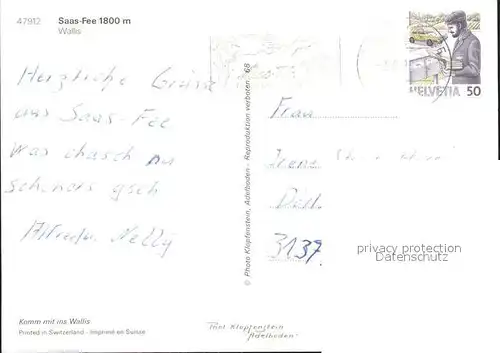 47912 Saas-Fee 1800 m
Wallis
HELVETIA 50
Herzliche Grüsse
aus Saas-Fee
Was chasch nu
schöners gseh
Alfred u. Nelly
Frau
Irene
Dorf
3137
© Photo Klopfenstein, Adelboden - Reproduktion verboten 68
privacy protection
Datenschutz
Komm mit ins Wallis
Printed in Switzerland - Imprimé en Suisse
Phot Klopfenstein
Adelboden